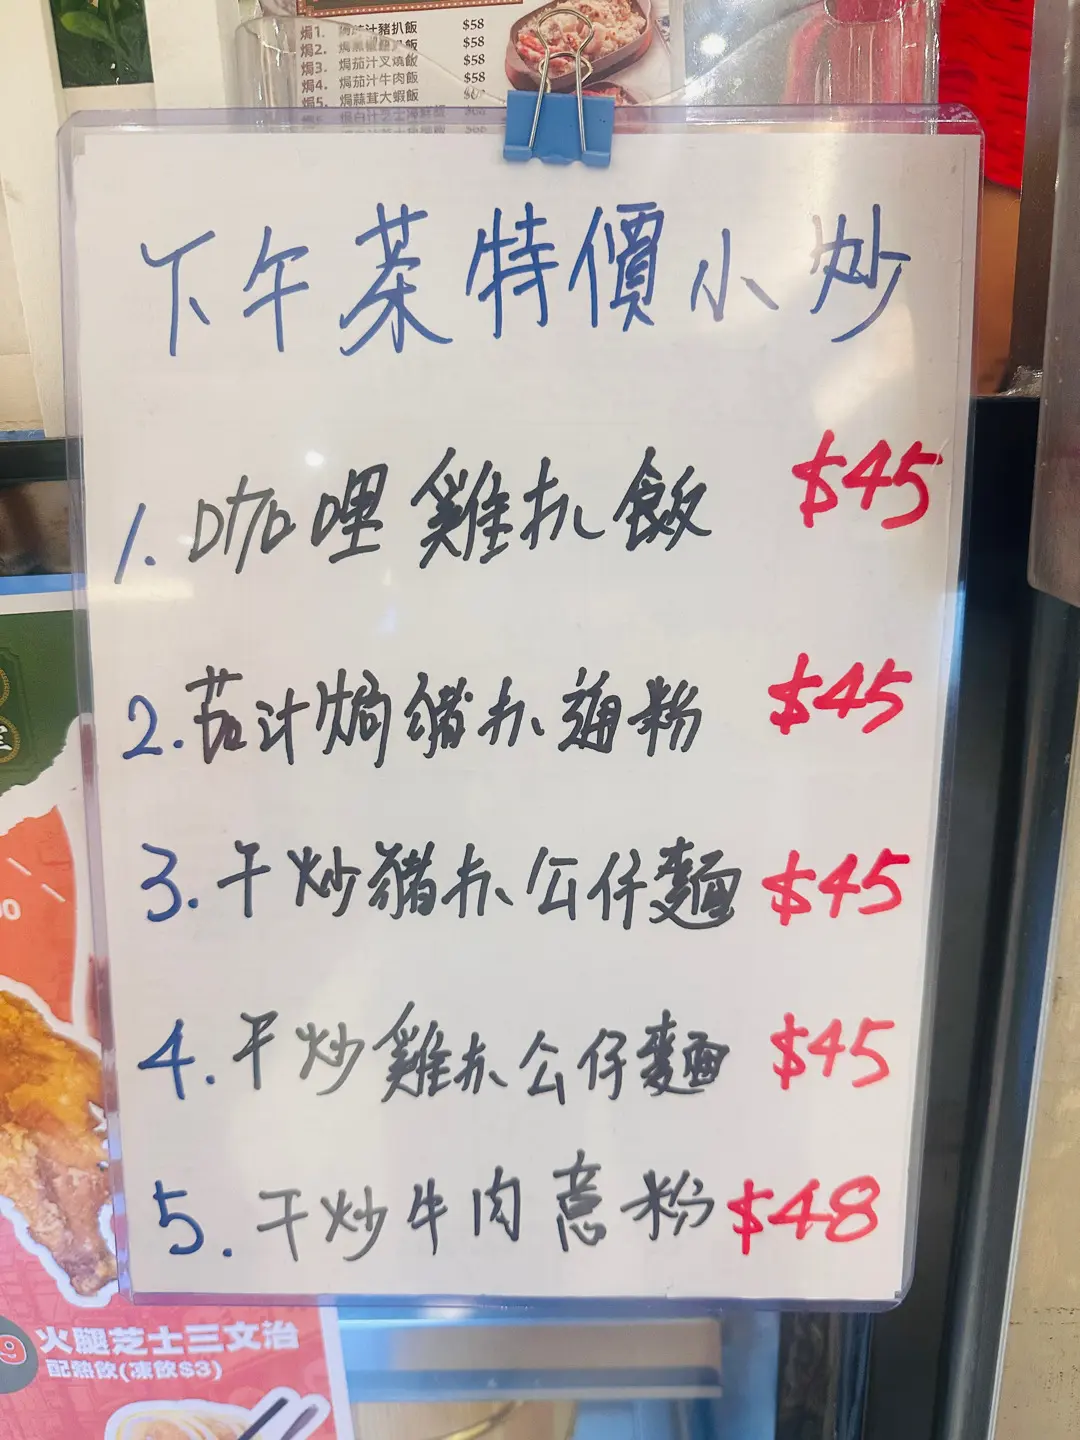 焗1. 焗茄汁豬扒飯 $58
焗2. $58
焗3. 焗茄汁叉燒飯 $58
焗4. 焗茄汁牛肉飯 $58
焗5. 焗蒜茸大蝦飯
下午茶特價小炒
1. 咖哩雞扒飯 $45
2. 茄汁焗豬扒通粉 $45
3. 干炒豬扒公仔麵 $45
4. 干炒雞扒公仔麵 $45
5. 干炒牛肉意粉 $48
火腿芝士三文治
配熱飲(凍飲$3)